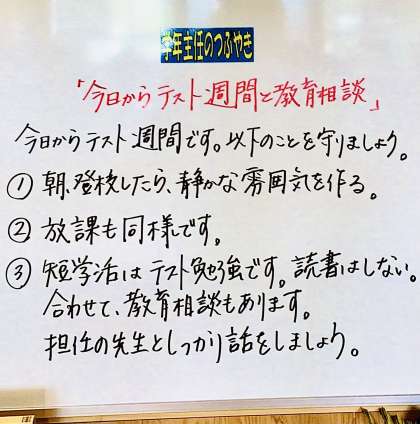 学年主任のつぶやき
「今日からテスト週間と教育相談」
今日からテスト週間です。以下のことを守りましょう。
① 朝、登校したら、静かな雰囲気を作る。
② 放課も同様です。
③ 短学活はテスト勉強です。読書はしない。
合わせて、教育相談もあります。
担任の先生としっかり話をしましょう。